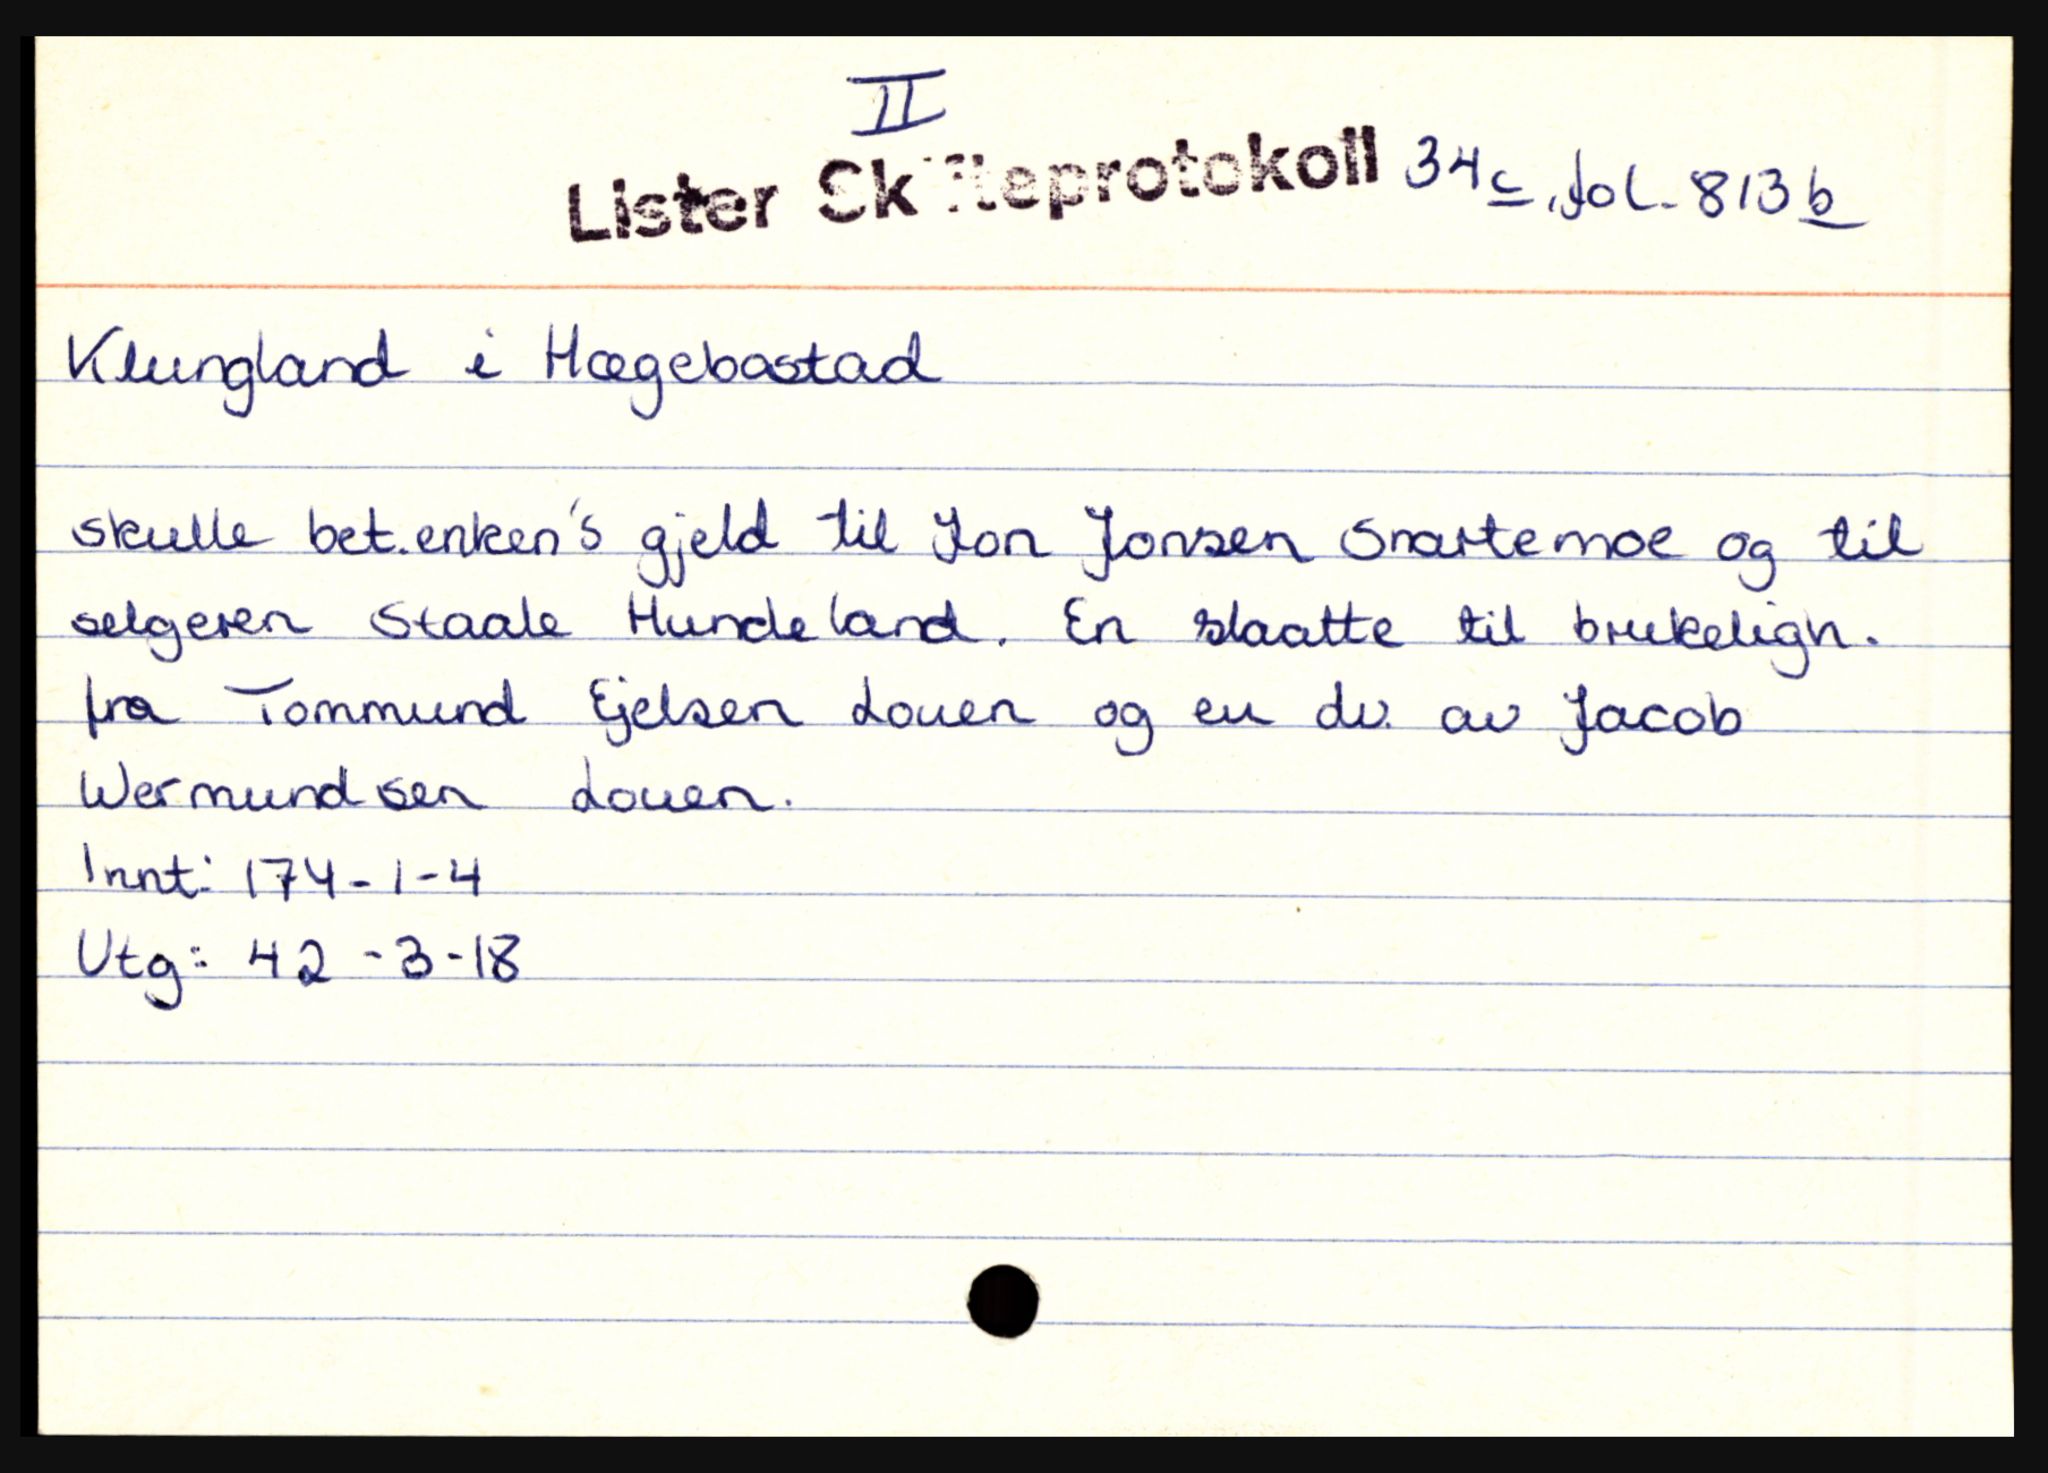 II
Lister Skifteprotokoll 34c, fol. 813b
Klungland i Hægebostad
skulle bet. enken's gjeld til Jon Jonsen Snartemoe og til
selgeren Staale Hundeland. En slaatte til brukeligh.
fra Tommund Ejelsen Louen og en do. av Jacob
Wermundsen Louen.
Innt: 174-1-4
Utg: 42-3-18